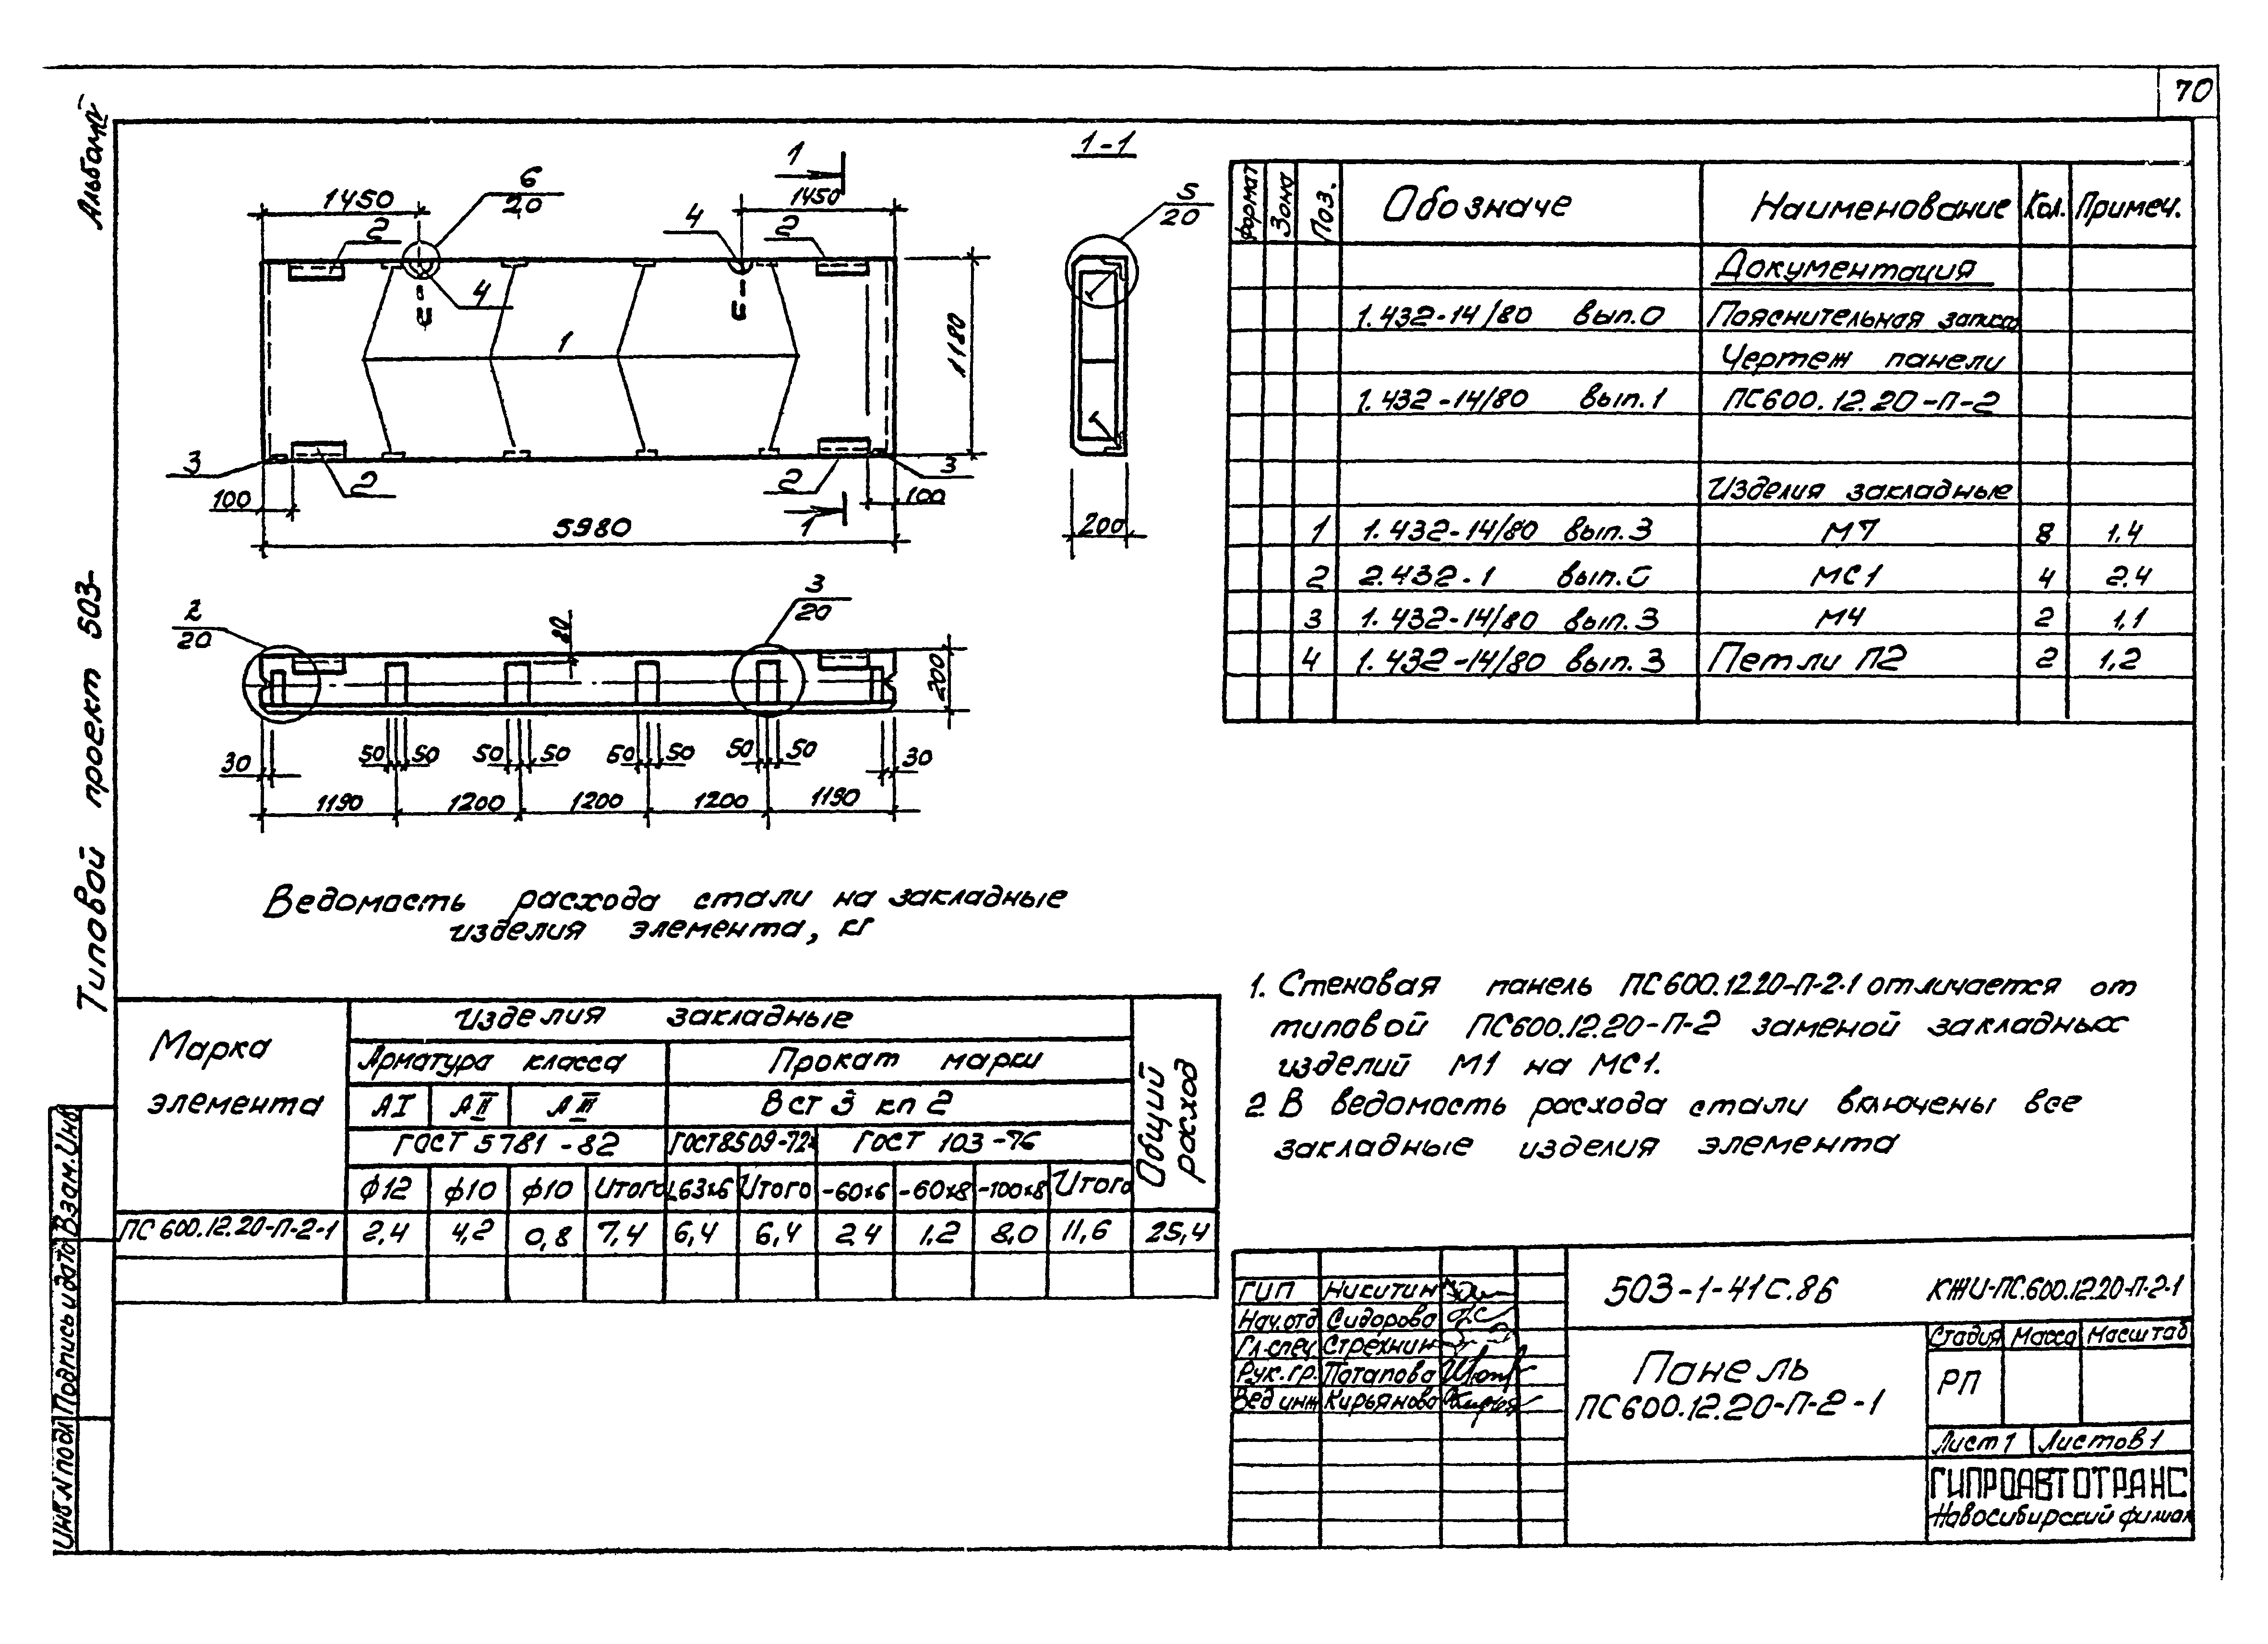 70
Альбом IV
Типовой проект 503-
Взам.Инв
Подпись и дата
Инв.N подл
1450
2
6
20
4
1
1450
2
4
1
1180
3
2
100
2
3
1
100
5980
1-1
5
20
200
2
20
80
3
20
200
30
50 50
50 50
50 50
50 50
30
1190 1200 1200 1200 1190
Формат Зона Поз. Обозначе Наименование Кол. Примеч.
Документация
1.432-14/80 вып.0 Пояснительная записка
Чертеж панели
1.432-14/80 вып.1 ПС600.12.20-П-2
Изделия закладные
1 1.432-14/80 вып.3 М7 8 1,4
2 2.432-1 вып.0 МС1 4 2.4
3 1.432-14/80 вып.3 М4 2 1,1
4 1.432-14/80 вып.3 Петли П2 2 1,2
Ведомость расхода стали на закладные
изделия элемента, кг
Марка элемента
Изделия закладные
Общий расход
Арматура класса Прокат марки
АI АII АIII Вст 3 кп 2
ГОСТ 5781-82 ГОСТ8509-72* ГОСТ 103-76
ф12 ф10 ф10 Итого L63х6 Итого -60х6 -60х8 -100х8 Итого
ПС 600.12.20-П-2-1 2,4 4,2 0,8 7,4 6,4 6,4 2,4 1,2 8,0 11,6 25,4
1. Стеновая панель ПС600.12.20-П-2-1 отличается от
типовой ПС600.12.20-П-2 заменой закладных
изделий М1 на МС1.
2 В ведомость расхода стали включены все
закладные изделия элемента
ГИП Никитин
Нач.отд Сидорова
Гл.спец Стрехнин
Рук.гр. Потапова
Вед инж Кирьянова
503-1-41с.86 КЖИ-ПС.600.12.20-П-2-1
Панель
ПС600.12.20-П-2-1
Стадия Масса Масштаб
РП
Лист 1 Листов 1
ГИПРОАВТОТРАНС
Новосибирский филиал